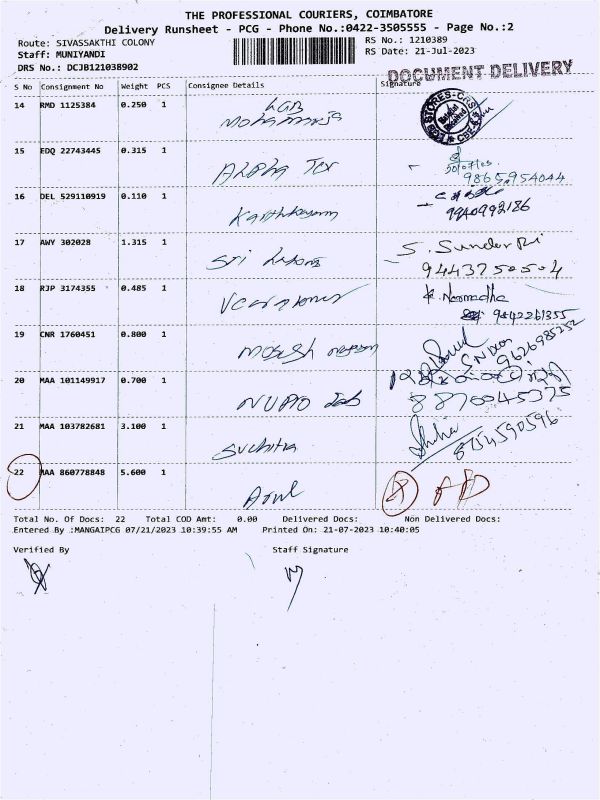 THE PROFESSIONAL COURIERS, COIMBATORE
Delivery Runsheet - PCG - Phone No.:0422-3505555 - Page No.:2
Route: SIVASSAKTHI COLONY
Staff: MUNIYANDI
DRS No.: DCJB121038902
RS No.: 1210389
RS Date: 21-Jul-2023
DOCUMENT DELIVERY
S No Consignment No Weight PCS Consignee Details Signature
14 RMD 1125384 0.250 1
LGB
15 EDQ 22743445 0.315 1
Alpha Tex
9865954044
16 DEL 529110919 0.110 1
Karthikeyan
9940992186
17 AWY 302028 1.315 1
Sri
S. Sunder Ri
9443750504
18 RJP 3174355 0.485 1
K. Narmadha
9842261355
19 CNR 1760451 0.800 1
9626985252
20 MAA 101149917 0.700 1
8870045375
21 MAA 103782681 3.100 1
Suchitra
8754590596
22 MAA 860778848 5.600 1
Arul
Total No. Of Docs: 22 Total COD Amt: 0.00 Delivered Docs: Non Delivered Docs:
Entered By :MANGAIPCG 07/21/2023 10:39:55 AM Printed On: 21-07-2023 10:40:05
Verified By Staff Signature